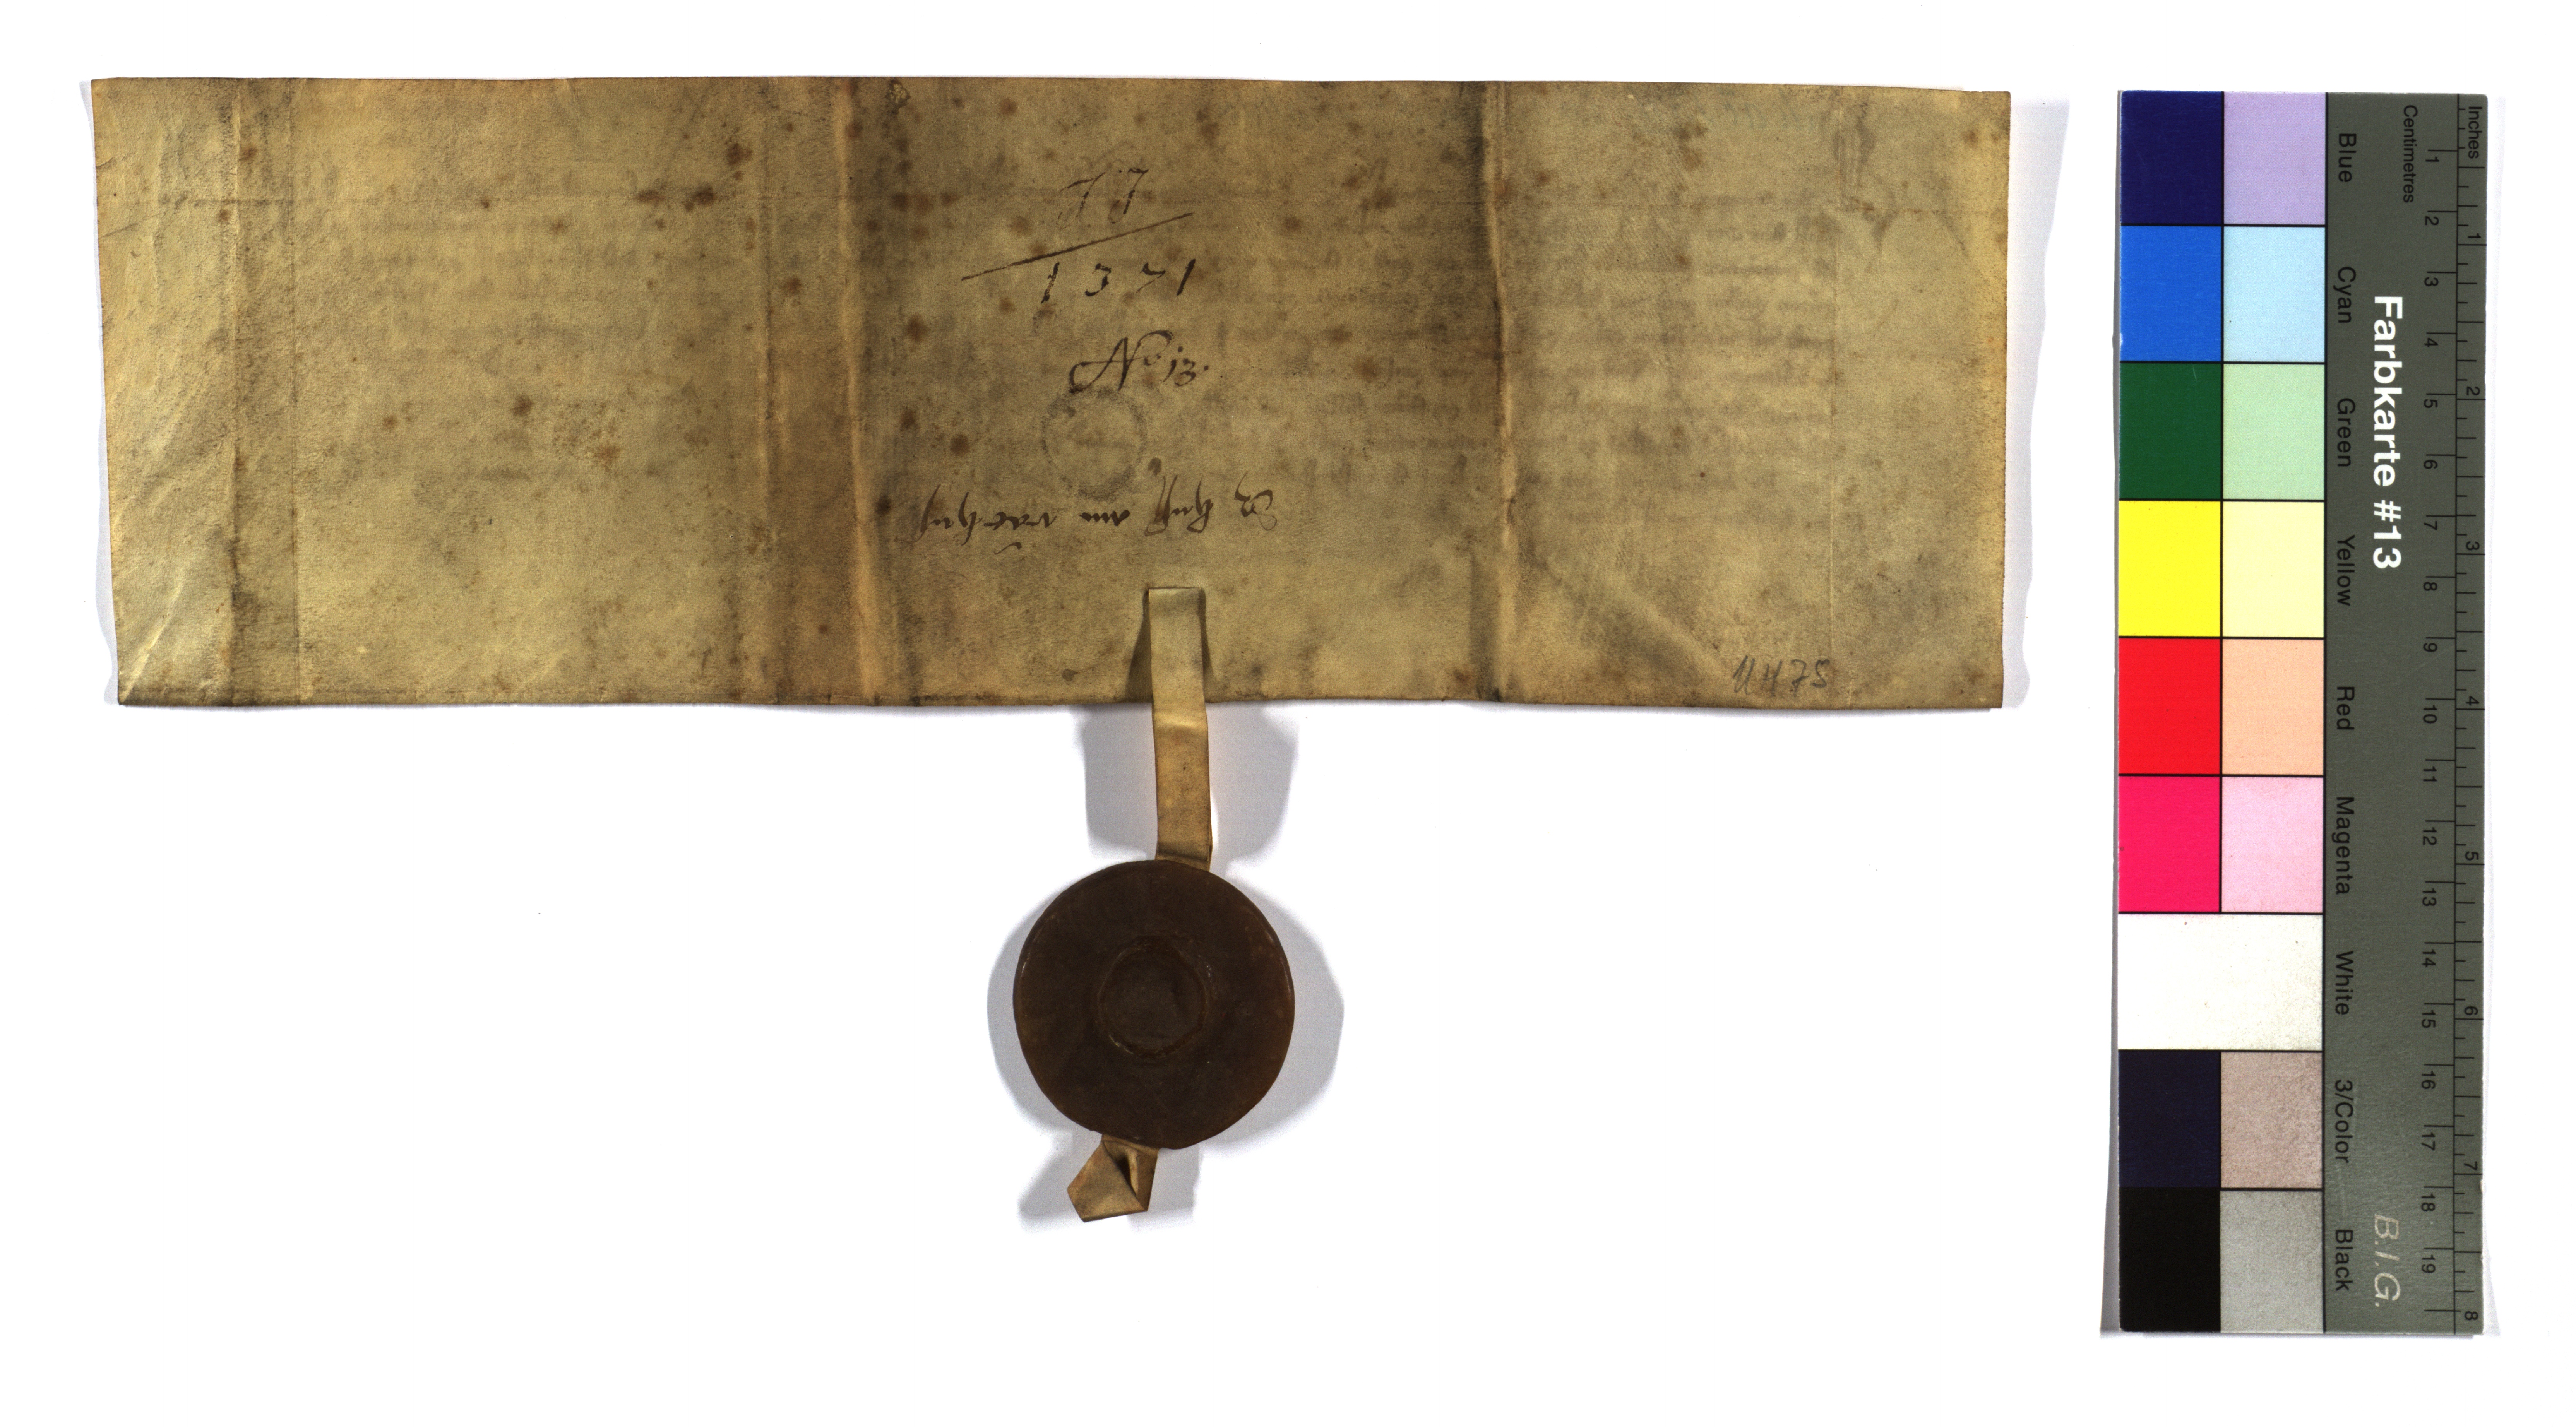 1371
No 13.
UH 75
Farbkarte #13
B.I.G.
Blue
Cyan
Green
Yellow
Red
Magenta
White
3/Color
Black
Centimetres
1 2 3 4 5 6 7 8 9 10 11 12 13 14 15 16 17 18 19
Inches
1 2 3 4 5 6 7 8